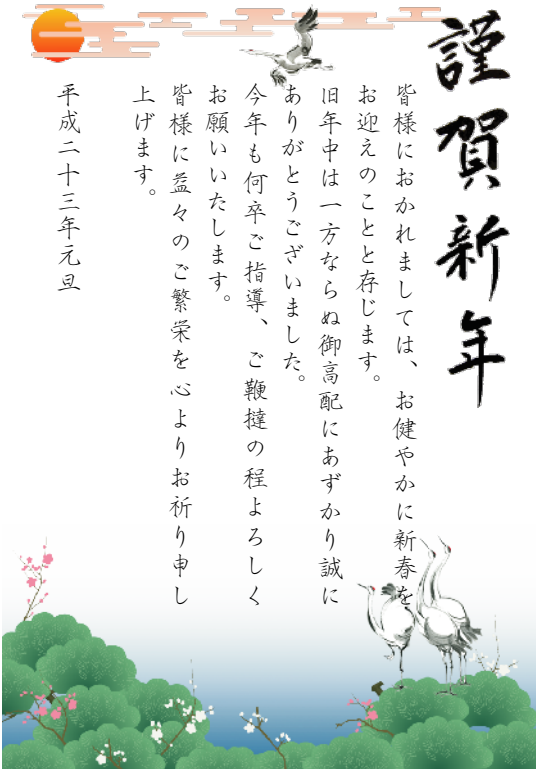 謹賀新年
皆様におかれましては、お健やかに新春を
お迎えのことと存じます。
旧年中は一方ならぬ御高配にあずかり誠に
ありがとうございました。
今年も何卒ご指導、ご鞭撻の程よろしく
お願いいたします。
皆様に益々のご繁栄を心よりお祈り申し
上げます。
平成二十三年元旦